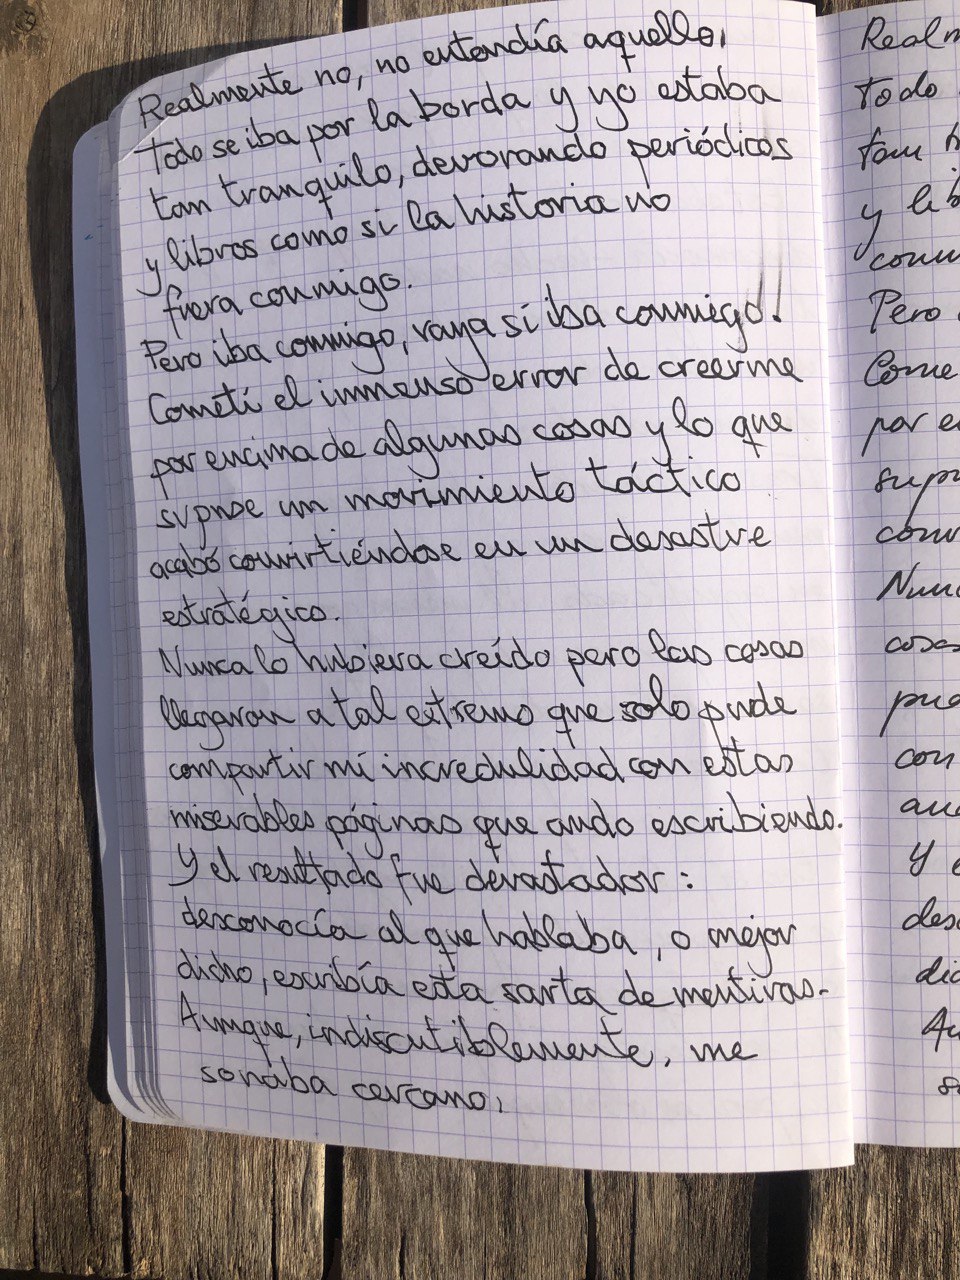 Realmente no, no entendía aquello,
todo se iba por la borda y yo estaba
tan tranquilo, devorando periódicos
y libros como si la historia no
fuera conmigo.
Pero iba conmigo, vaya si iba conmigo!
Cometí el inmenso error de creerme
por encima de algunas cosas y lo que
supuse un movimiento táctico
acabó convirtiéndose en un desastre
estratégico.
Nunca lo hubiera creído pero las cosas
llegaron a tal extremo que solo pude
compartir mi incredulidad con estas
miserables páginas que ando escribiendo.
Y el resultado fue devastador:
desconocía al que hablaba, o mejor
dicho, escribía esta sarta de mentiras.
Aunque, indiscutiblemente, me
sonaba cercano,
Realm
todo
tan
y lib
conm
Pero
Come
por en
supu
conv
Nunc
cosas
pud
con
and
y e
desc
dic
Au
s